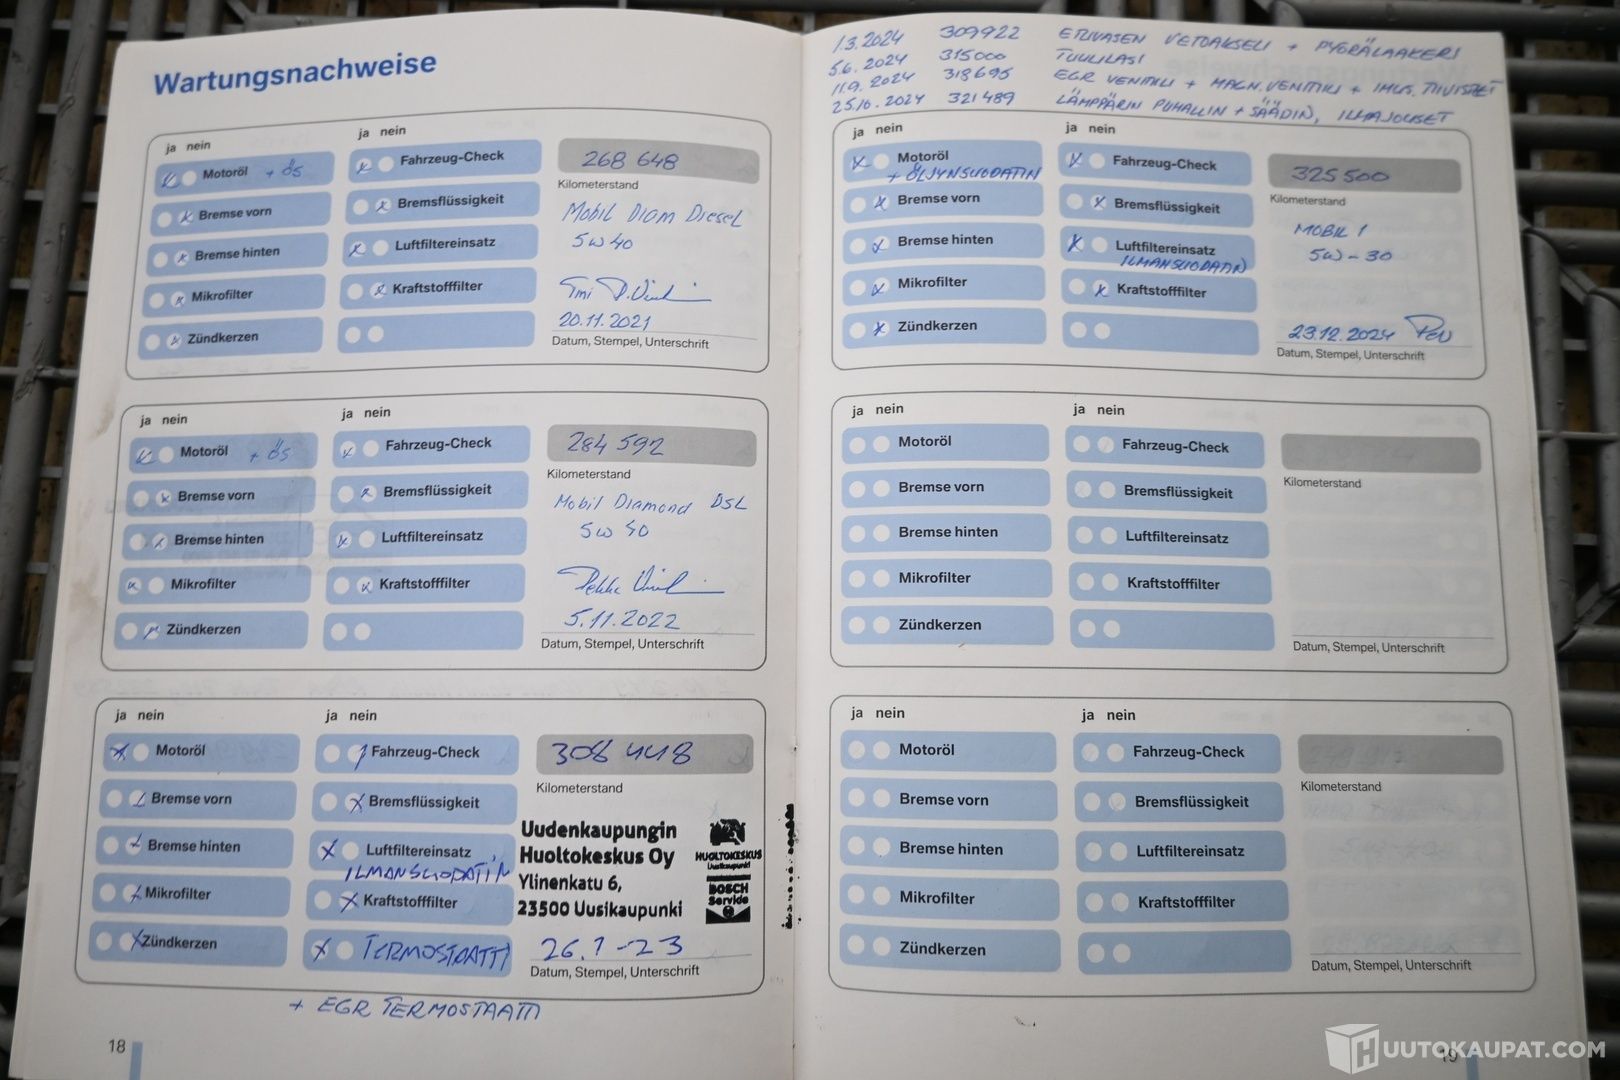 Wartungsnachweise
ja nein
Motoröl + ÖS
Bremse vorn
Bremse hinten
Mikrofilter
Zündkerzen
ja nein
Fahrzeug-Check
Bremsflüssigkeit
Luftfiltereinsatz
Kraftstofffilter
268 648
Kilometerstand
Mobil Diam Diesel
5W40
Tmi
20.11.2021
Datum, Stempel, Unterschrift
ja nein
Motoröl + ÖS
Bremse vorn
Bremse hinten
Mikrofilter
Zündkerzen
ja nein
Fahrzeug-Check
Bremsflüssigkeit
Luftfiltereinsatz
Kraftstofffilter
284 592
Kilometerstand
Mobil Diamond DSL
5W40
Pekka
5.11.2022
Datum, Stempel, Unterschrift
ja nein
Motoröl
Bremse vorn
Bremse hinten
Mikrofilter
Zündkerzen
ja nein
Fahrzeug-Check
Bremsflüssigkeit
Luftfiltereinsatz
ILMANSUODATIN
Kraftstofffilter
TERMOSTAATTI
308 448
Kilometerstand
Uudenkaupungin
Huoltokeskus Oy
Ylinenkatu 6,
23500 Uusikaupunki
HUOLTOKESKUS
Uusikaupunki
BOSCH
Service
26.1-23
Datum, Stempel, Unterschrift
+ EGR TERMOSTAATTI
18
1.3.2024 309922 ETUVASEN VETOAKSELI + PYÖRÄLAAKERI
5.6.2024 315000 TUULILASI
11.9.2024 318695 EGR VENTTIILI + MAGN.VENTTIILI + IMUS. TIIVISTEET
25.10.2024 321489 LÄMPPÄRIN PUHALLIN + SÄÄDIN, ILMAJOUSET
ja nein
Motoröl
+ ÖLJYNSUODATIN
Bremse vorn
Bremse hinten
Mikrofilter
Zündkerzen
ja nein
Fahrzeug-Check
Bremsflüssigkeit
Luftfiltereinsatz
ILMANSUODATIN
Kraftstofffilter
325500
Kilometerstand
MOBIL 1
5W-30
23.12.2024
Datum, Stempel, Unterschrift
ja nein
Motoröl
Bremse vorn
Bremse hinten
Mikrofilter
Zündkerzen
ja nein
Fahrzeug-Check
Bremsflüssigkeit
Luftfiltereinsatz
Kraftstofffilter
Kilometerstand
Datum, Stempel, Unterschrift
ja nein
Motoröl
Bremse vorn
Bremse hinten
Mikrofilter
Zündkerzen
ja nein
Fahrzeug-Check
Bremsflüssigkeit
Luftfiltereinsatz
Kraftstofffilter
Kilometerstand
Datum, Stempel, Unterschrift
19
HUUTOKAUPAT.COM